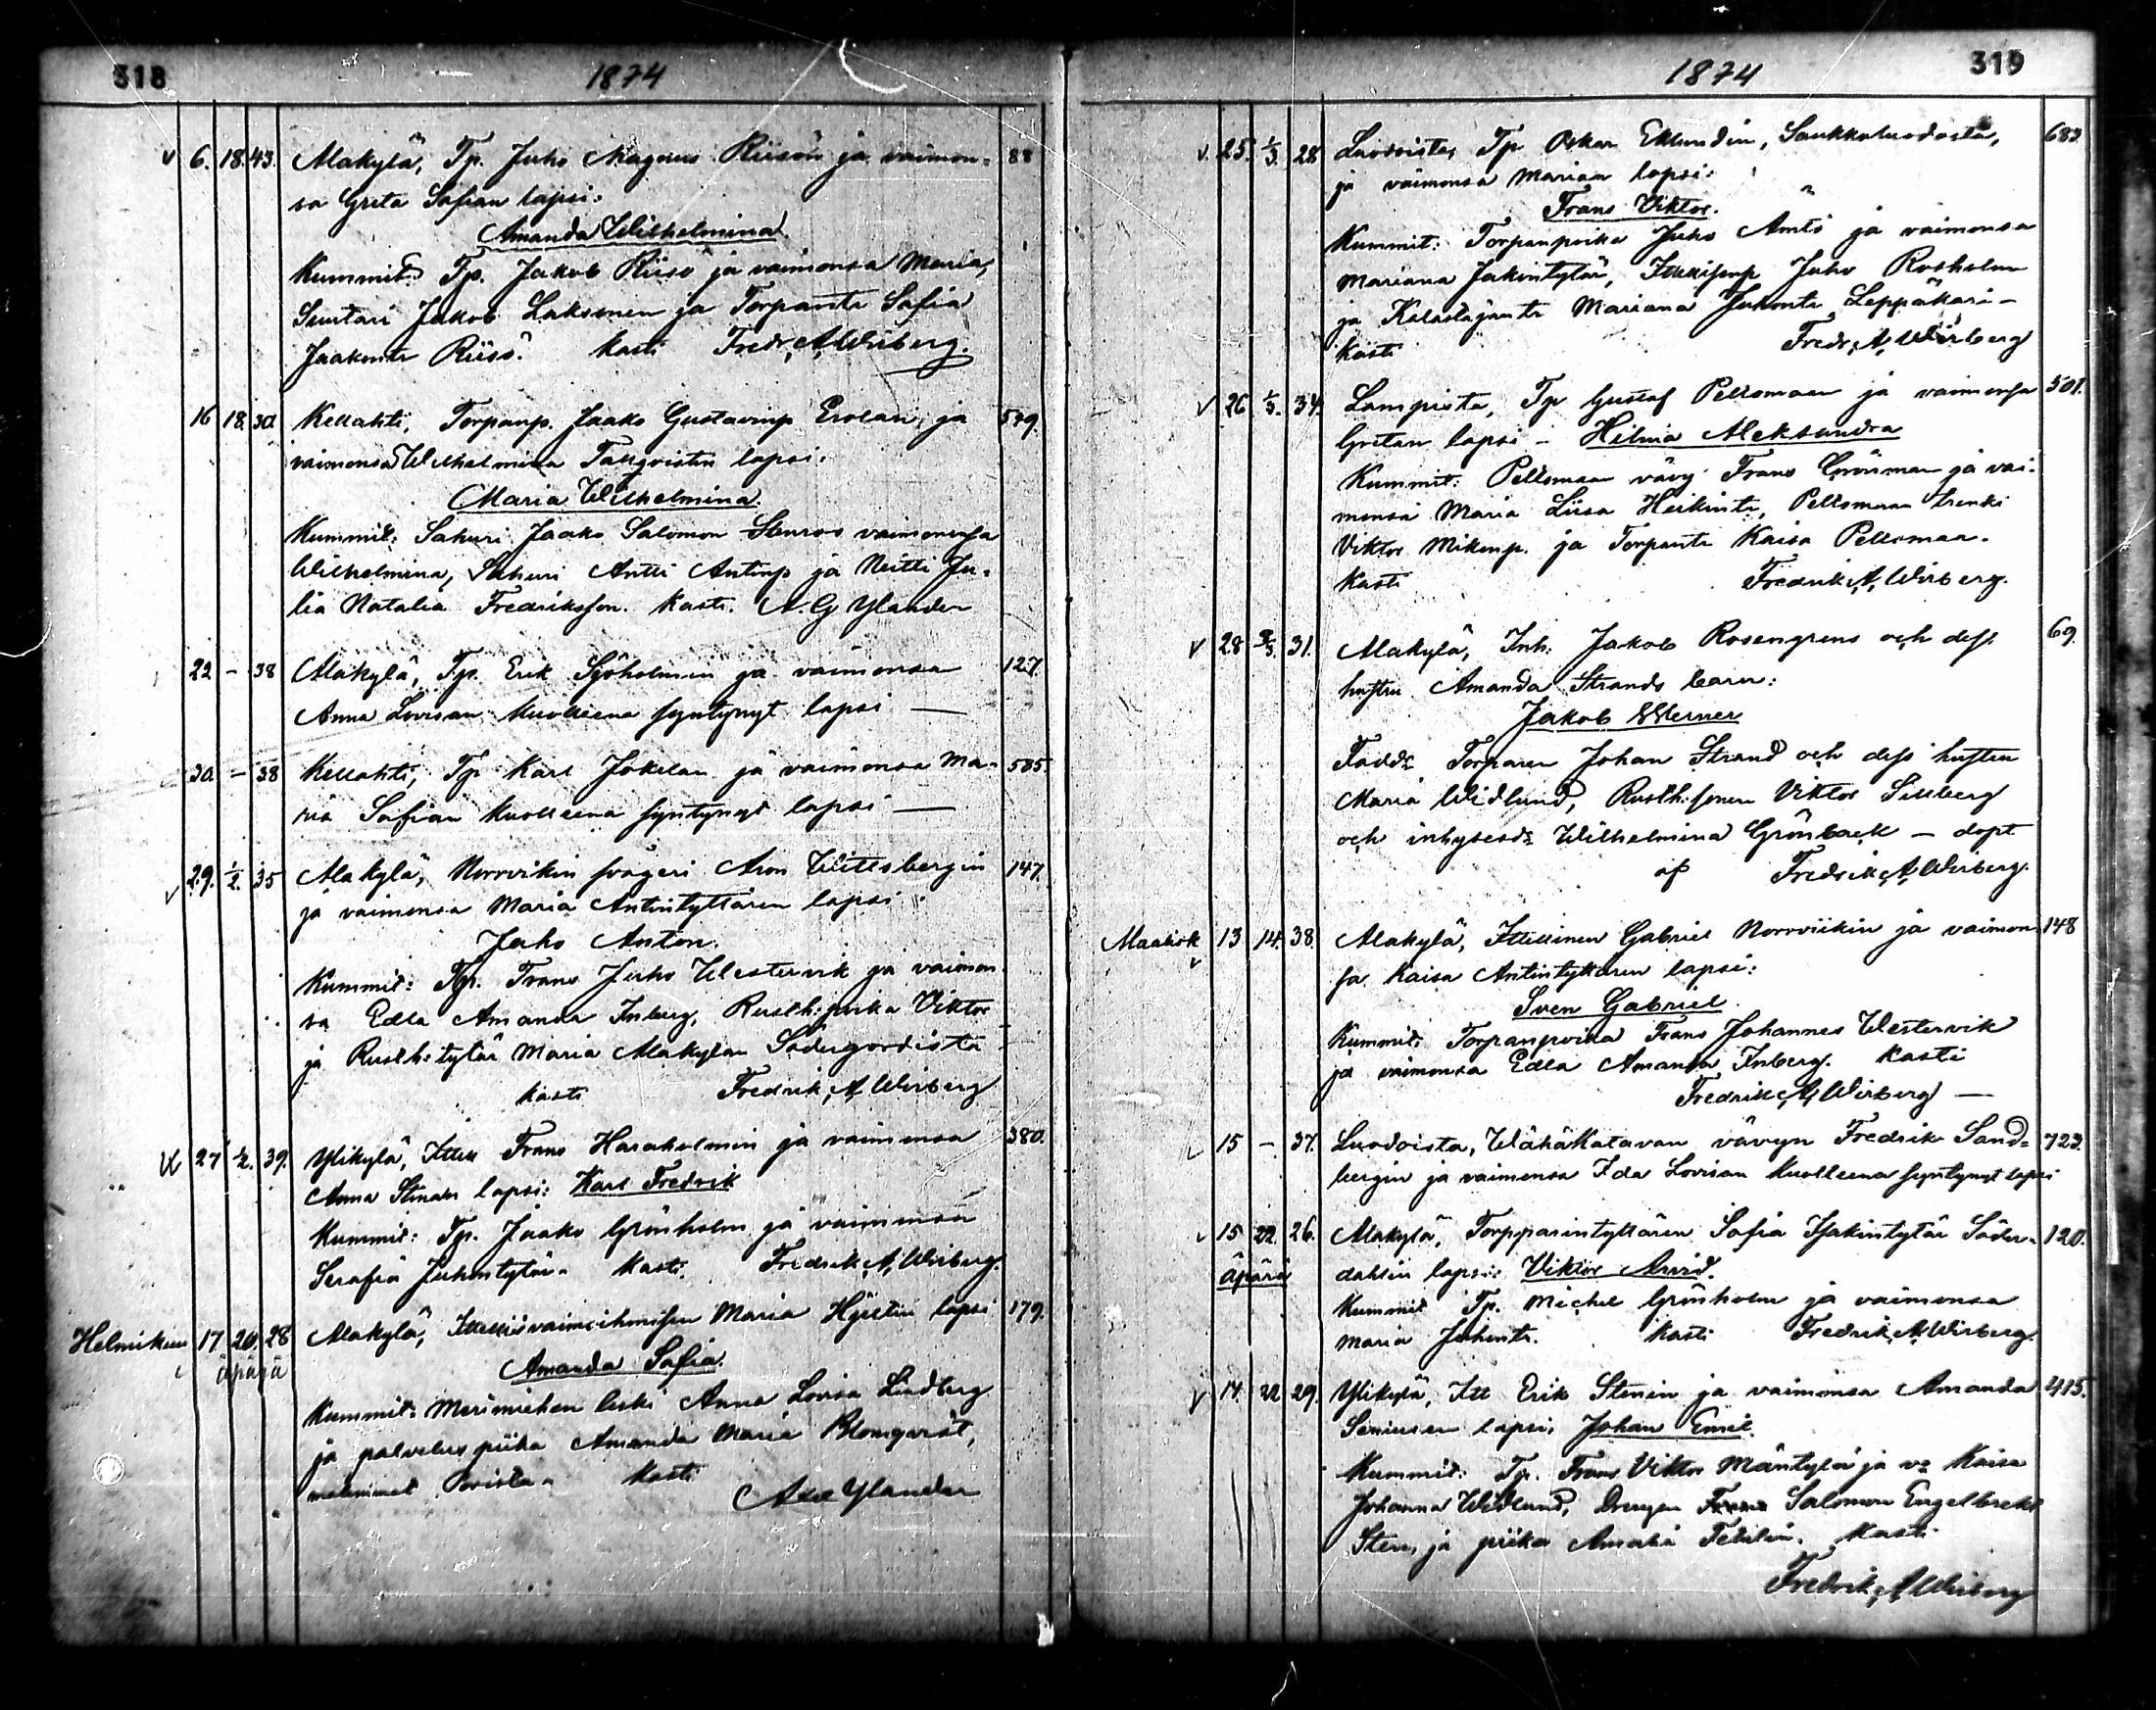 318
1874
v 6. 18. 43. Alakylä, Tp. Juho Magnus Riisön ja vaimon- 88
sa Greta Sofian lapsi:
Amanda Wilhelmina
Kummit: Tp. Jakob Riisö ja vaimonsa Maria,
Suutari Jakob Laksonen ja Torpantr Sofia
Jaakontr Riisö. Kasti Fredr. A. Wirberg.
16 18. 30. Kellahti, Torpanp. Jaako Gustavinp Erolan, ja 579.
vaimonsa Wilhelmina Tallqvistin lapsi:
Maria Wilhelmina
Kummit: Sahuri Jaako Salomon Stenroos vaimonensa
Wilhelmina, Sahuri Antti Antinp ja Neitti Ju-
lia Natalia Fredriksson. Kasti. A. G Ylander
22 – 38 Alakylä, Tp. Erik Sjöholmin ja vaimonsa 127.
Anna Lovisan kuolleena syntynyt lapsi —
30. – 38 Kellahti, Tp Karl Jokelan ja vaimonsa Ma- 585.
ria Sofian kuolleena syntynyt lapsi —
v 29. 1/2. 35 Alakylä, Norrvikin svågeri Aron Wittsbergin 147.
ja vaimonsa Maria Antintyttären lapsi:
Juho Anton.
Kummit: Tp. Frans Juho Westervik ja vaimon-
sa Edla Amanda Inberg, Rusth: poika Viktor
ja Rusth: tytär Maria Alakylän Södergordista –
kasti Fredrik. A. Wirberg
v 27 1/2. 39. Ylikylä, Itell Frans Haraholmin ja vaimonsa 380.
Anna Stinan lapsi: Karl Fredrik
Kummit: Tp. Jaako Grönholm ja vaimonsa
Serafia Juhontytär. Kasti. Fredrik. A. Wirberg.
Helmikuu 17 20. 28 Alakylä, Itellisvaimoihmisen Maria Hjeltin lapsi 179.
äpärä
Amanda Sofia.
Kummit: Merimiehen leski Anna Lovisa Lindberg
ja palveluspiika Amanda Maria Blomqvist,
molemmat Porista. Kasti
Axel Ylander
1874
319
v. 25. 1/3. 28 Luodoista, Tp Oskar Eklundin, Saukkoluodosta, 683.
ja vaimonsa Marian lapsi:
Frans Viktor.
Kummit: Torpanpoika Juho Ämtö ja vaimonsa
Mariana Jakintytär, Itellisenp Juho Rosholm
ja Kalastajantr Mariana Juhontr Leppäkari –
Kasti Fredr. A. Wirberg
v 26 1/3. 34. Lampista, Tp Gustaf Peltomaan ja vaimonsa 501.
Gretan lapsi – Hilma Aleksandra
Kummit: Peltomaan vävy Frans Grönman ja vai-
monsa Maria Liisa Heikintr, Peltomaan trenki
Viktor Mikonp. ja Torpantr Kaisa Peltomaa.
Kasti Fredrik A. Wirberg.
v 28 8/3. 31. Alakylä, Inh: Jakob Rosengrens och dess 69.
hustru Amanda Strands barn:
Jakob Werner
Faddr Torparen Johan Strand och dess hustru
Maria Widlund, Rusth:sonen Viktor Sillberg
och inhysesdr Wilhelmina Grönback – döpt
af Fredrik A. Wirberg.
Maalisk 13 14. 38. Alakylä, Itellinen Gabriel Norrviikin ja vaimon- 148
v
sa Kaisa Antintyttären lapsi:
Sven Gabriel.
Kummit: Torpanpoika Frans Johannes Westervik
ja vaimonsa Edla Amanda Inberg. Kasti
Fredrik A. Wirberg —
v 15 – 37. Luodoista, WähäKatavan vävyn Fredrik Sand- 723.
bergin ja vaimonsa Ida Lovisan kuolleena syntynyt lapsi
v 15 22. 26. Alakylä, Torpparintyttären Sofia Isakintytär Söder- 120.
äpärä dahlin lapsi: Viktor Arvid.
Kummit Tp. Michel Grönholm ja vaimonsa
Maria Juhontr. Kasti Fredrik A. Wirberg.
v 14. 22 29. Ylikylä, Itt Erik Stenin ja vaimonsa Amanda 415.
lapsi: Johan Emil.
Kummit: Tp. Frans Viktor Mäntylä ja vo Kaisa
Johanna Widlund, Drengen Frans Salomon Engelbrekt
Sten, ja piika Amalia Kasti
Fredrik. A. Wirberg